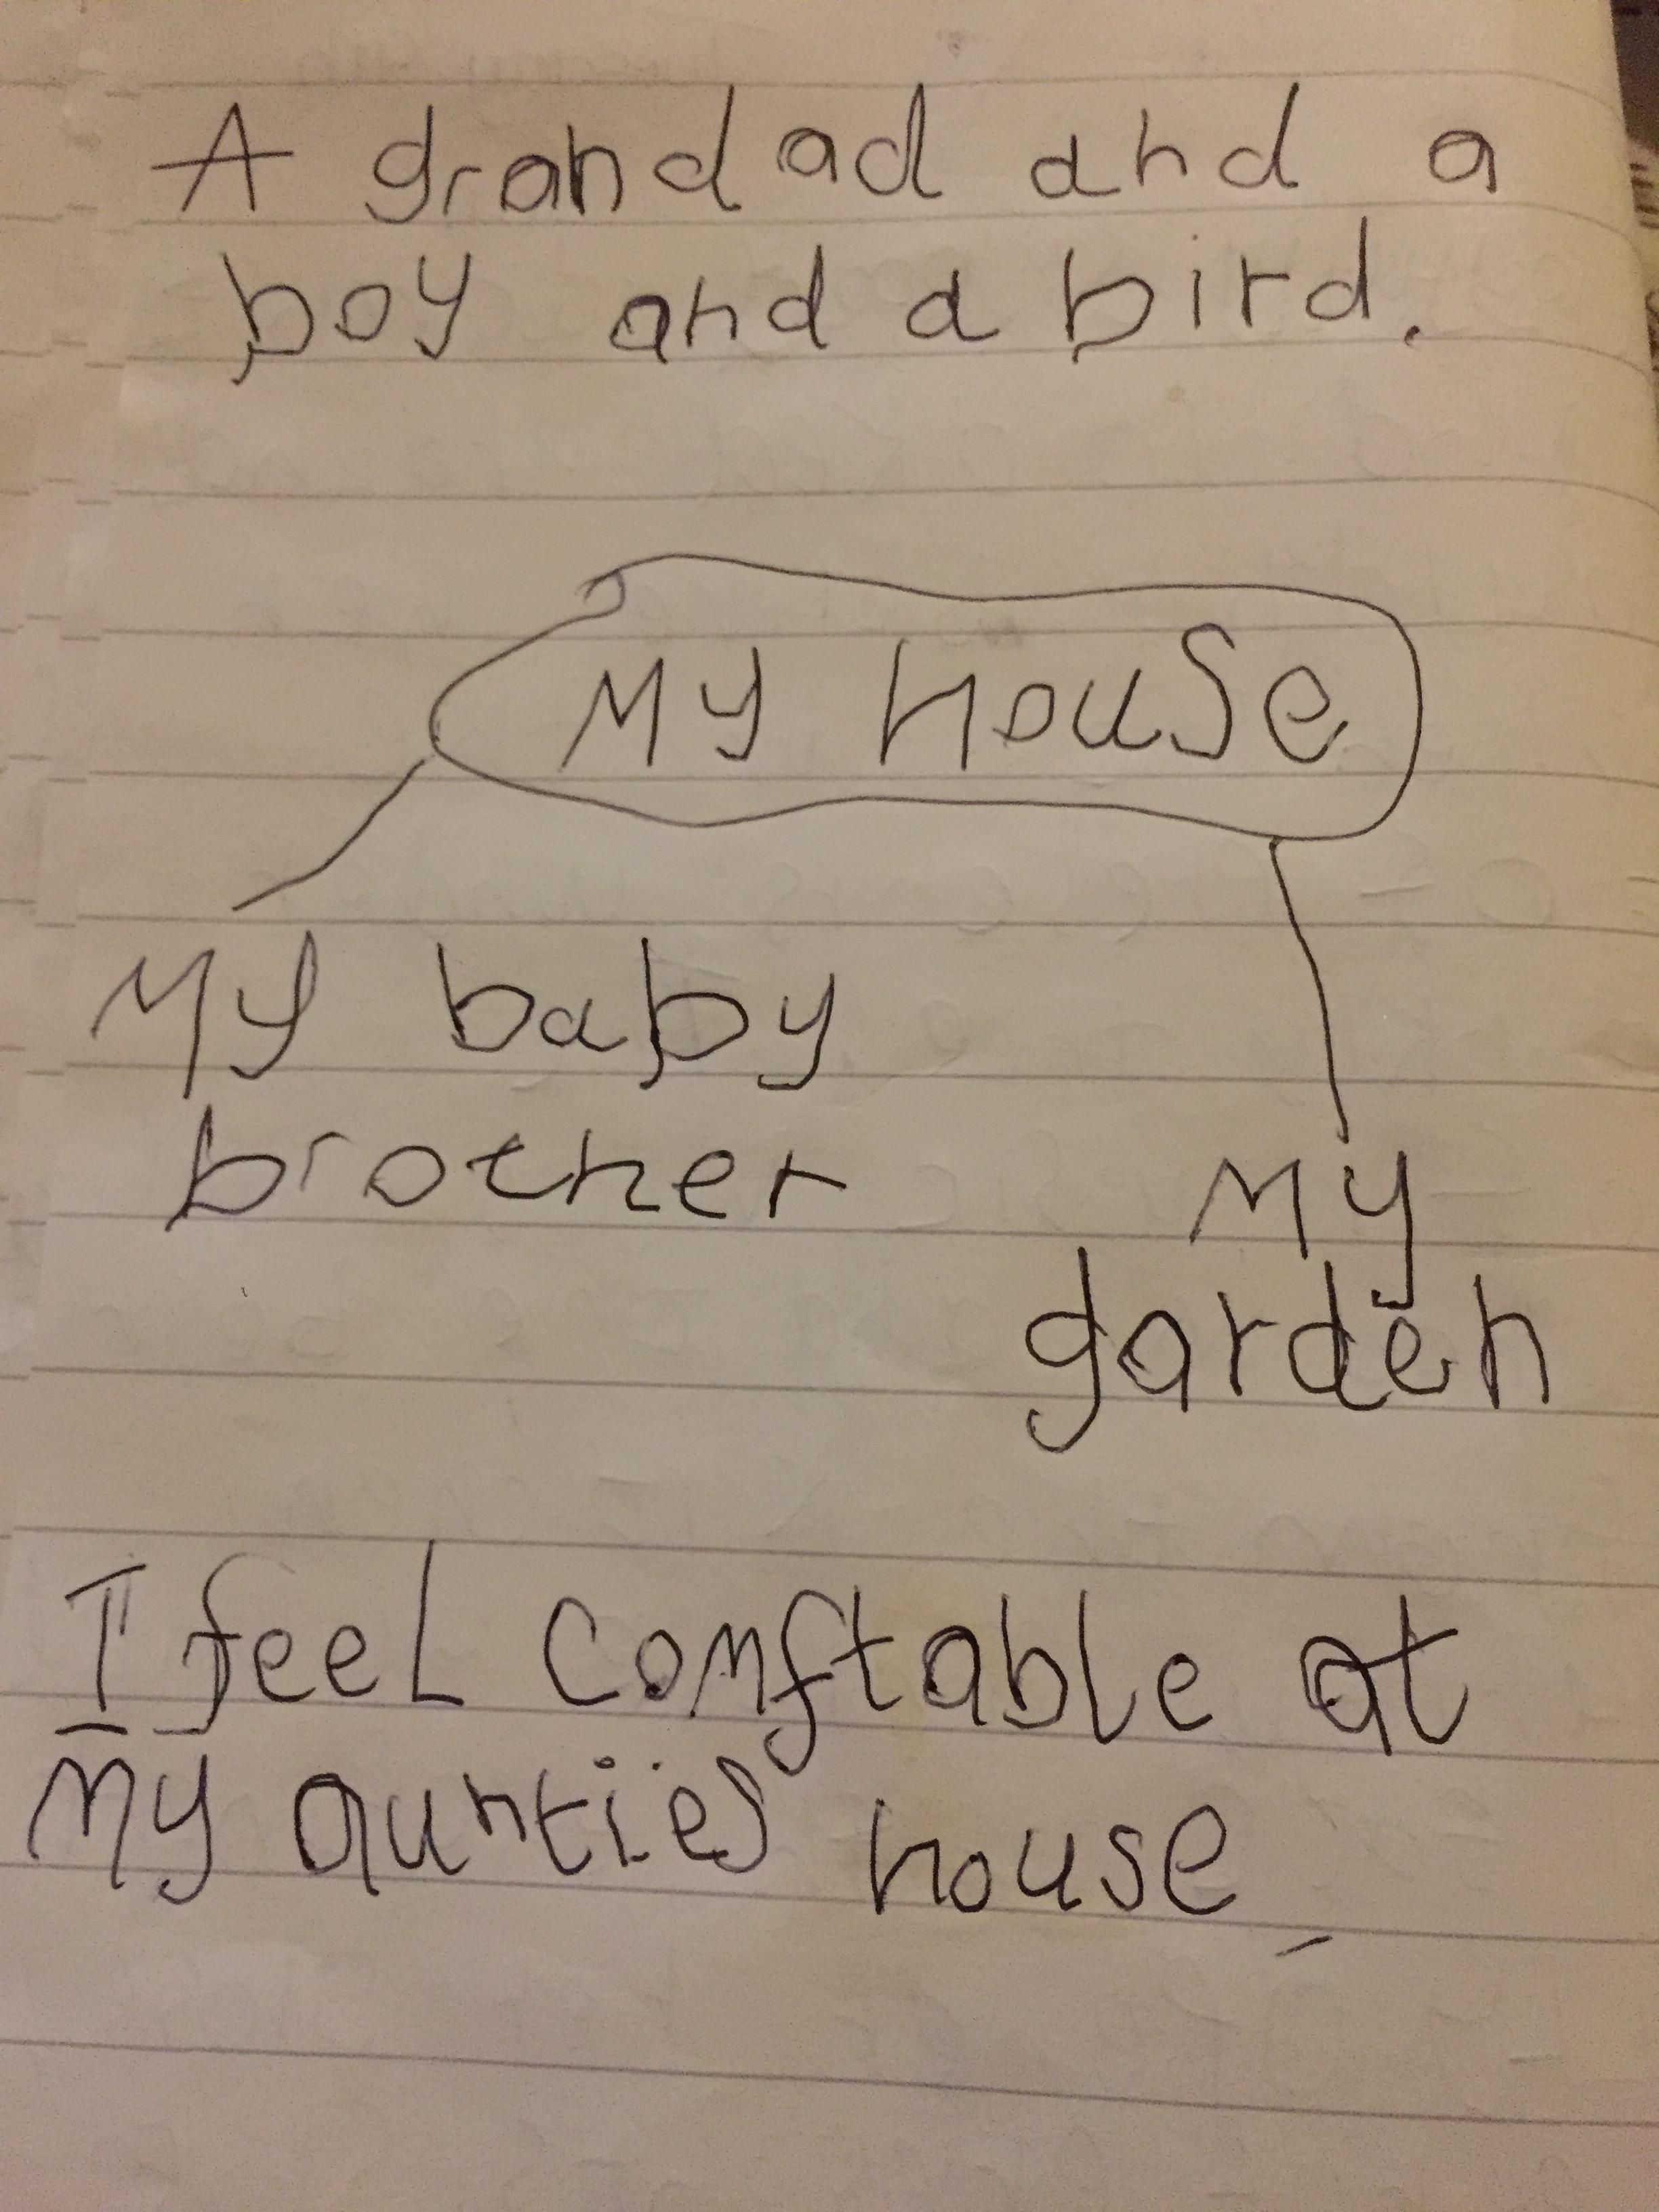 A grandad and a
boy and a bird.
My house
My baby
brother
My
garden
I feel comftable at
my aunties house